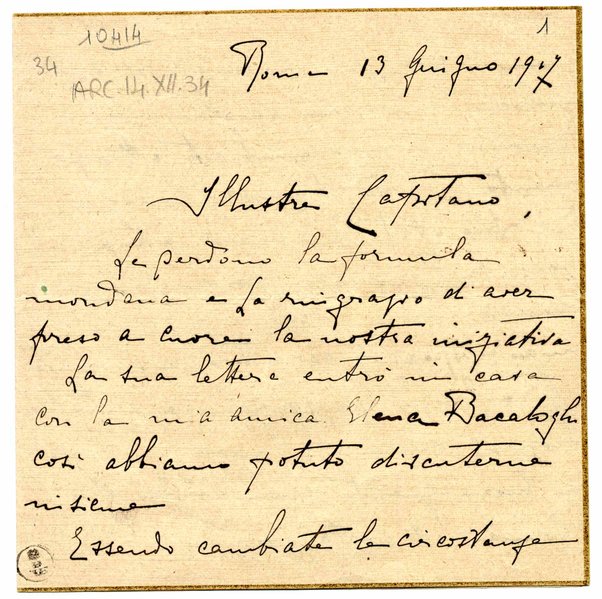 10414
34
ARC.14.XII.34
1
Roma 13 Giugno 1917
Illustre Capitano,
Le perdono la formula
mondana e La ringrazio di aver
preso a cuore la nostra iniziativa
La sua lettera entrò in casa
con la mia amica Elena Bacaloglu
così abbiamo potuto discuterne
insieme
Essendo cambiate le circostanze